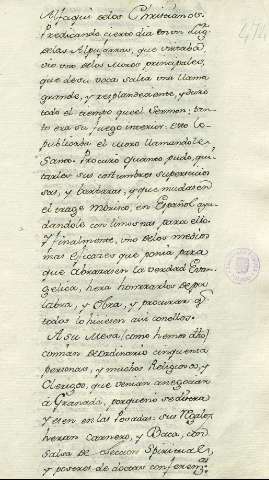 Alfaqui delos Christianos.
Predicando cierto dia en vn lug.
delas Alpujarras, que visitaba,
vio vno delos Moros principales,
que desu voca salia vna llama
grande, y resplandeciente, y duró
todo el tiempo que el Sermon: tan-
to era su fuego interior. Esto lo
publicaba el Moro llamandole
Santo. Procuró quanto pudo, qui-
tarles sus costumbres supersticio-
sas, y barbaras, y que mudasen
el trage Morisco, en Español ayu-
dandoles con limosnas para ello.
Y finalmente, vno delos medios
mas eficaces que ponia para
que abrazasen la verdad Evan-
gelica, hera honrrarlos depa-
labra, y Obra, y procurar q
todos lo hiciesen asi conellos.
A su Mesa (como hemos dho)
comian deordinario cinquenta
personas, y muchos Religiosos, y
Clerigos, que venian anegociar
á Granada, porque no sedivirtie
y esen en las Posadas. Sus Regalos
heran Carnero, y Baca, con
Salsa de leccion Spiritual,
y postres de doctas conferen.
474